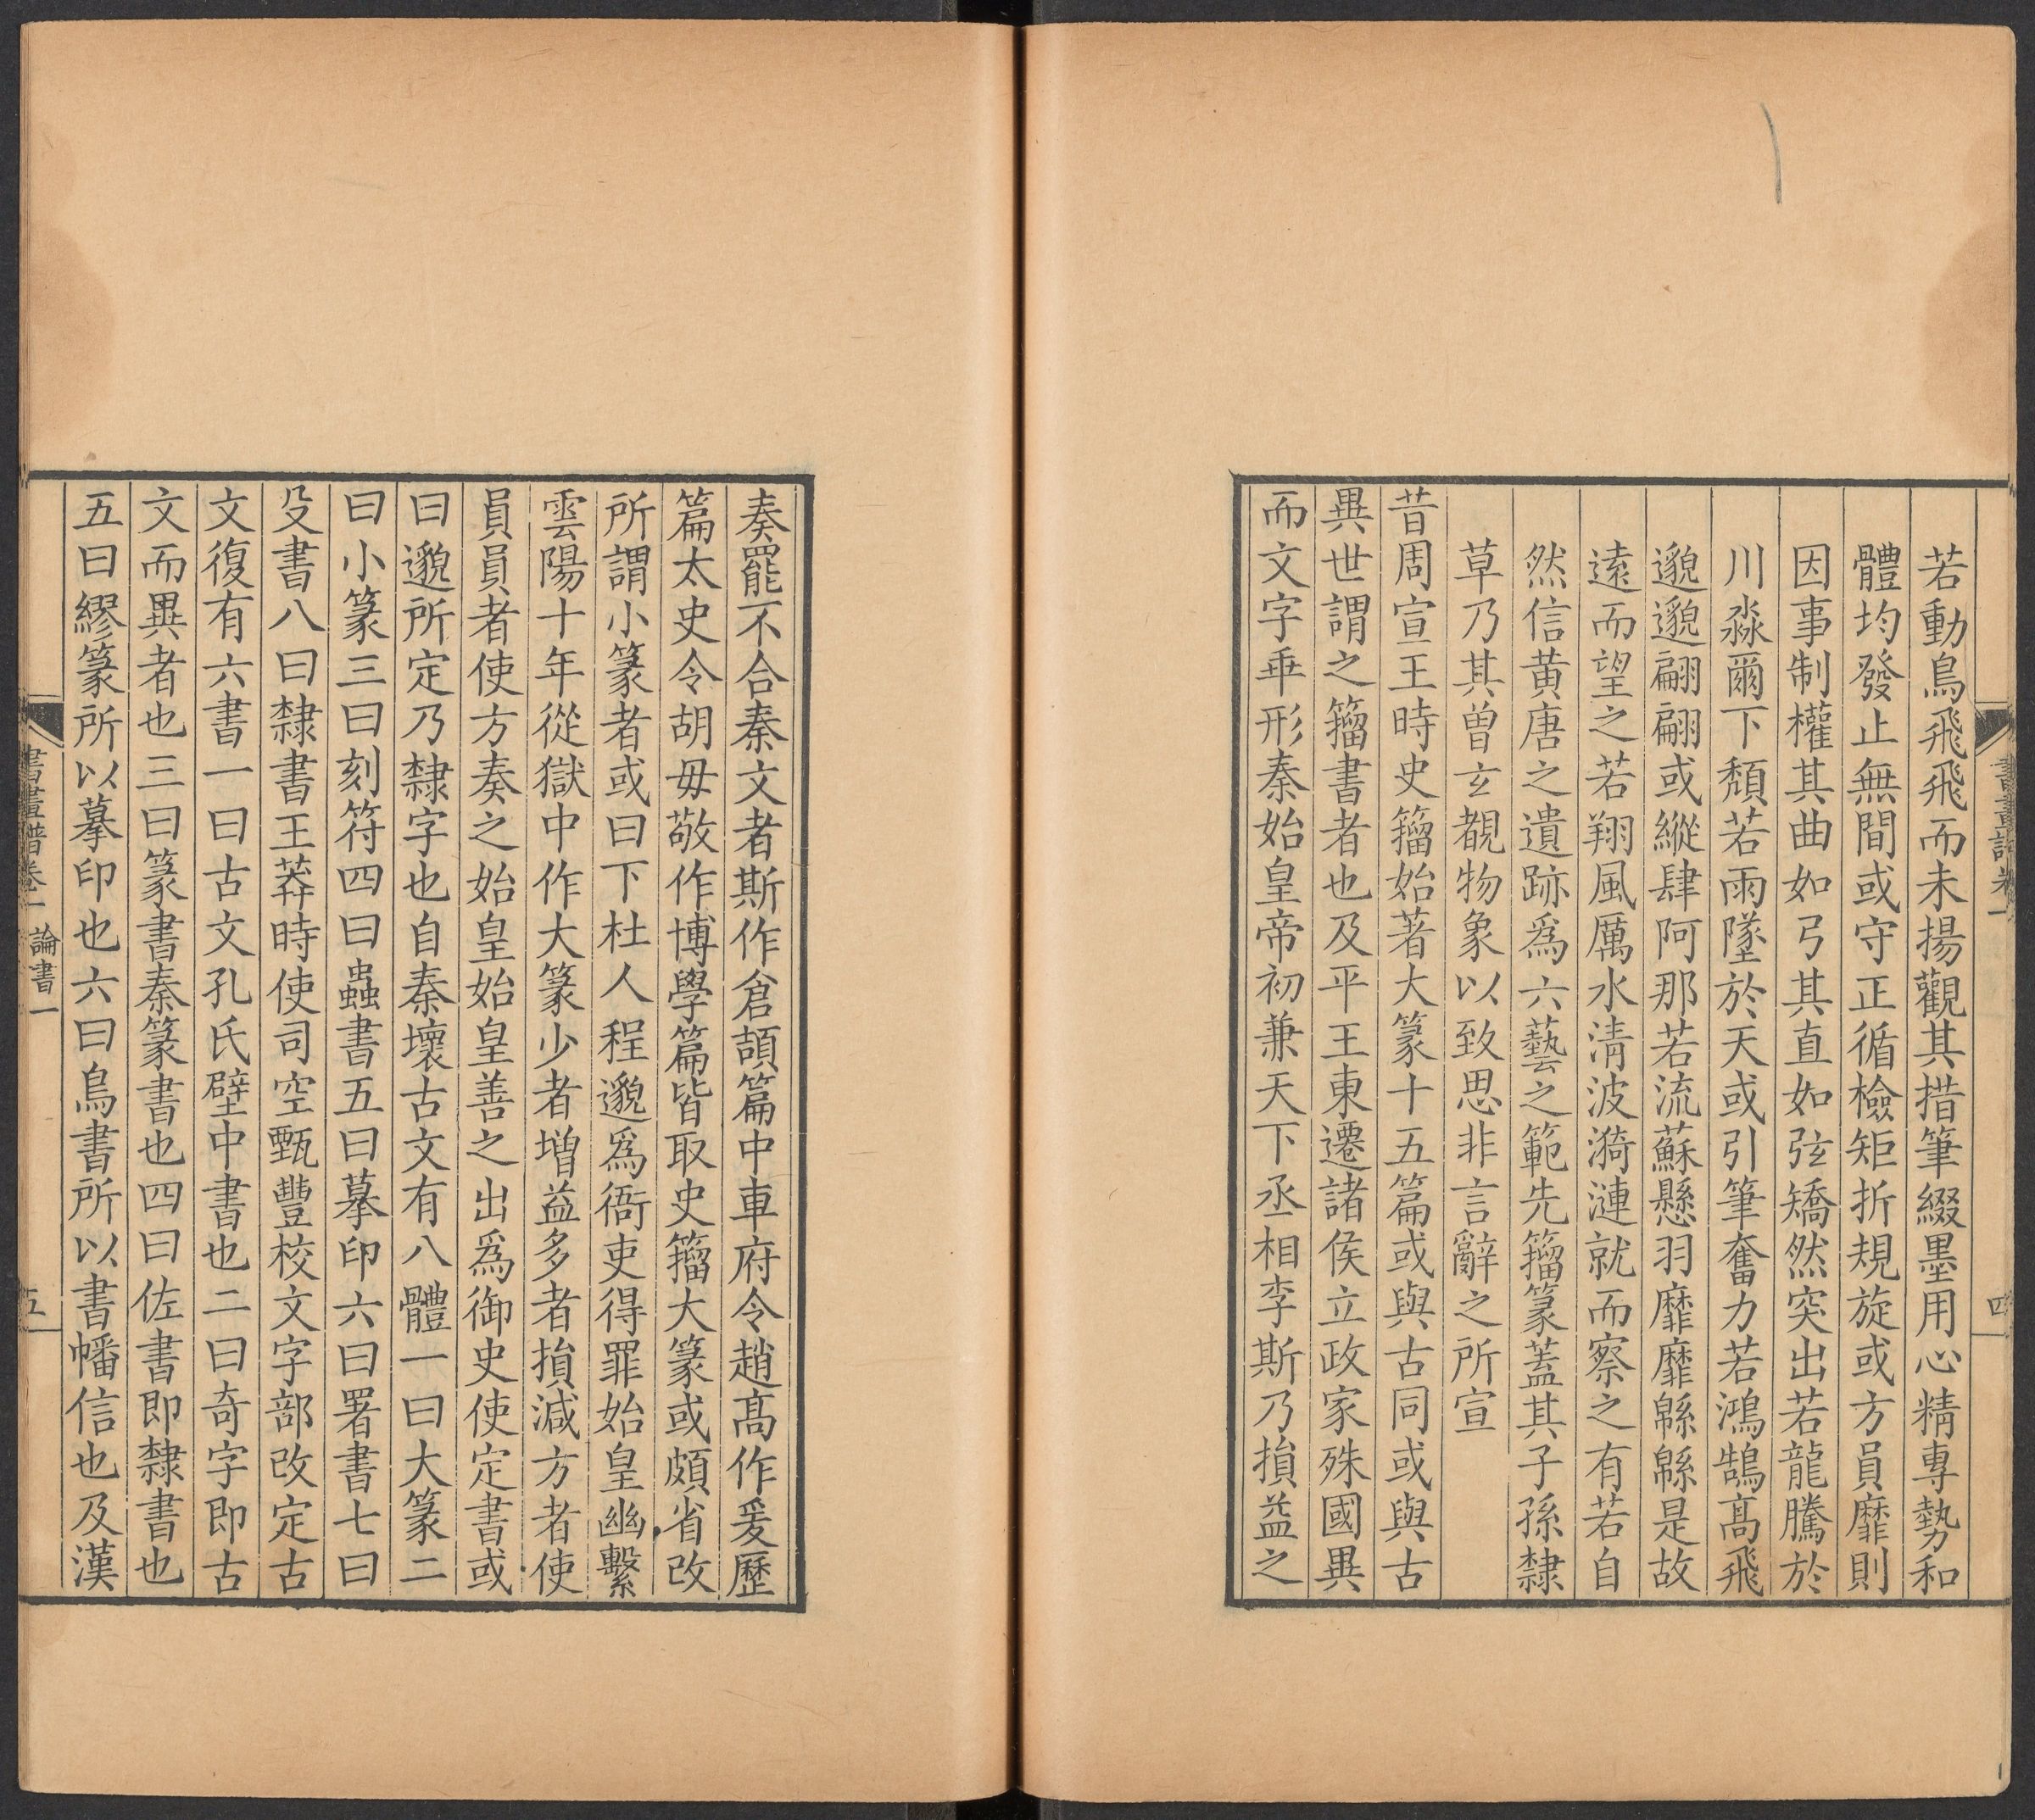 若動鳥飛飛而未揚觀其措筆綴墨用心精專勢和
體均發止無間或守正循檢矩折規旋或方員靡則
因事制權其曲如弓其直如弦矯然突出若龍騰於
川淼爾下頹若雨墜於天或引筆奮力若鴻鵠髙飛
邈邈翩翩或縱肆阿那若流蘇懸羽靡靡緜緜是故
遠而望之若翔風厲水清波漪漣就而察之有若自
然信黄唐之遺跡爲六藝之範先籀篆蓋其子孫隸
草乃其曾玄覩物象以致思非言辭之所宣
昔周宣王時史籀始著大篆十五篇或與古同或與古
異世謂之籀書者也及平王東遷諸侯立政家殊國異
而文字乖形秦始皇帝初兼天下丞相李斯乃損益之
書畫譜卷一
四
奏罷不合秦文者斯作倉頡篇中車府令趙髙作爰歷
篇太史令胡毋敬作博學篇皆取史籀大篆或頗省改
所謂小篆者或曰下杜人程邈爲衙吏得罪始皇幽繫
雲陽十年從獄中作大篆少者增益多者損減方者使
員員者使方奏之始皇始皇善之出爲御史使定書或
曰邈所定乃隸字也自秦壞古文有八體一曰大篆二
曰小篆三曰刻符四曰蟲書五曰摹印六曰署書七曰
殳書八曰隸書王莽時使司空甄豐校文字部改定古
文復有六書一曰古文孔氏壁中書也二曰奇字即古
文而異者也三曰篆書秦篆書也四曰佐書即隸書也
五曰繆篆所以摹印也六曰鳥書所以書幡信也及漢
書畫譜卷一 論書一
五